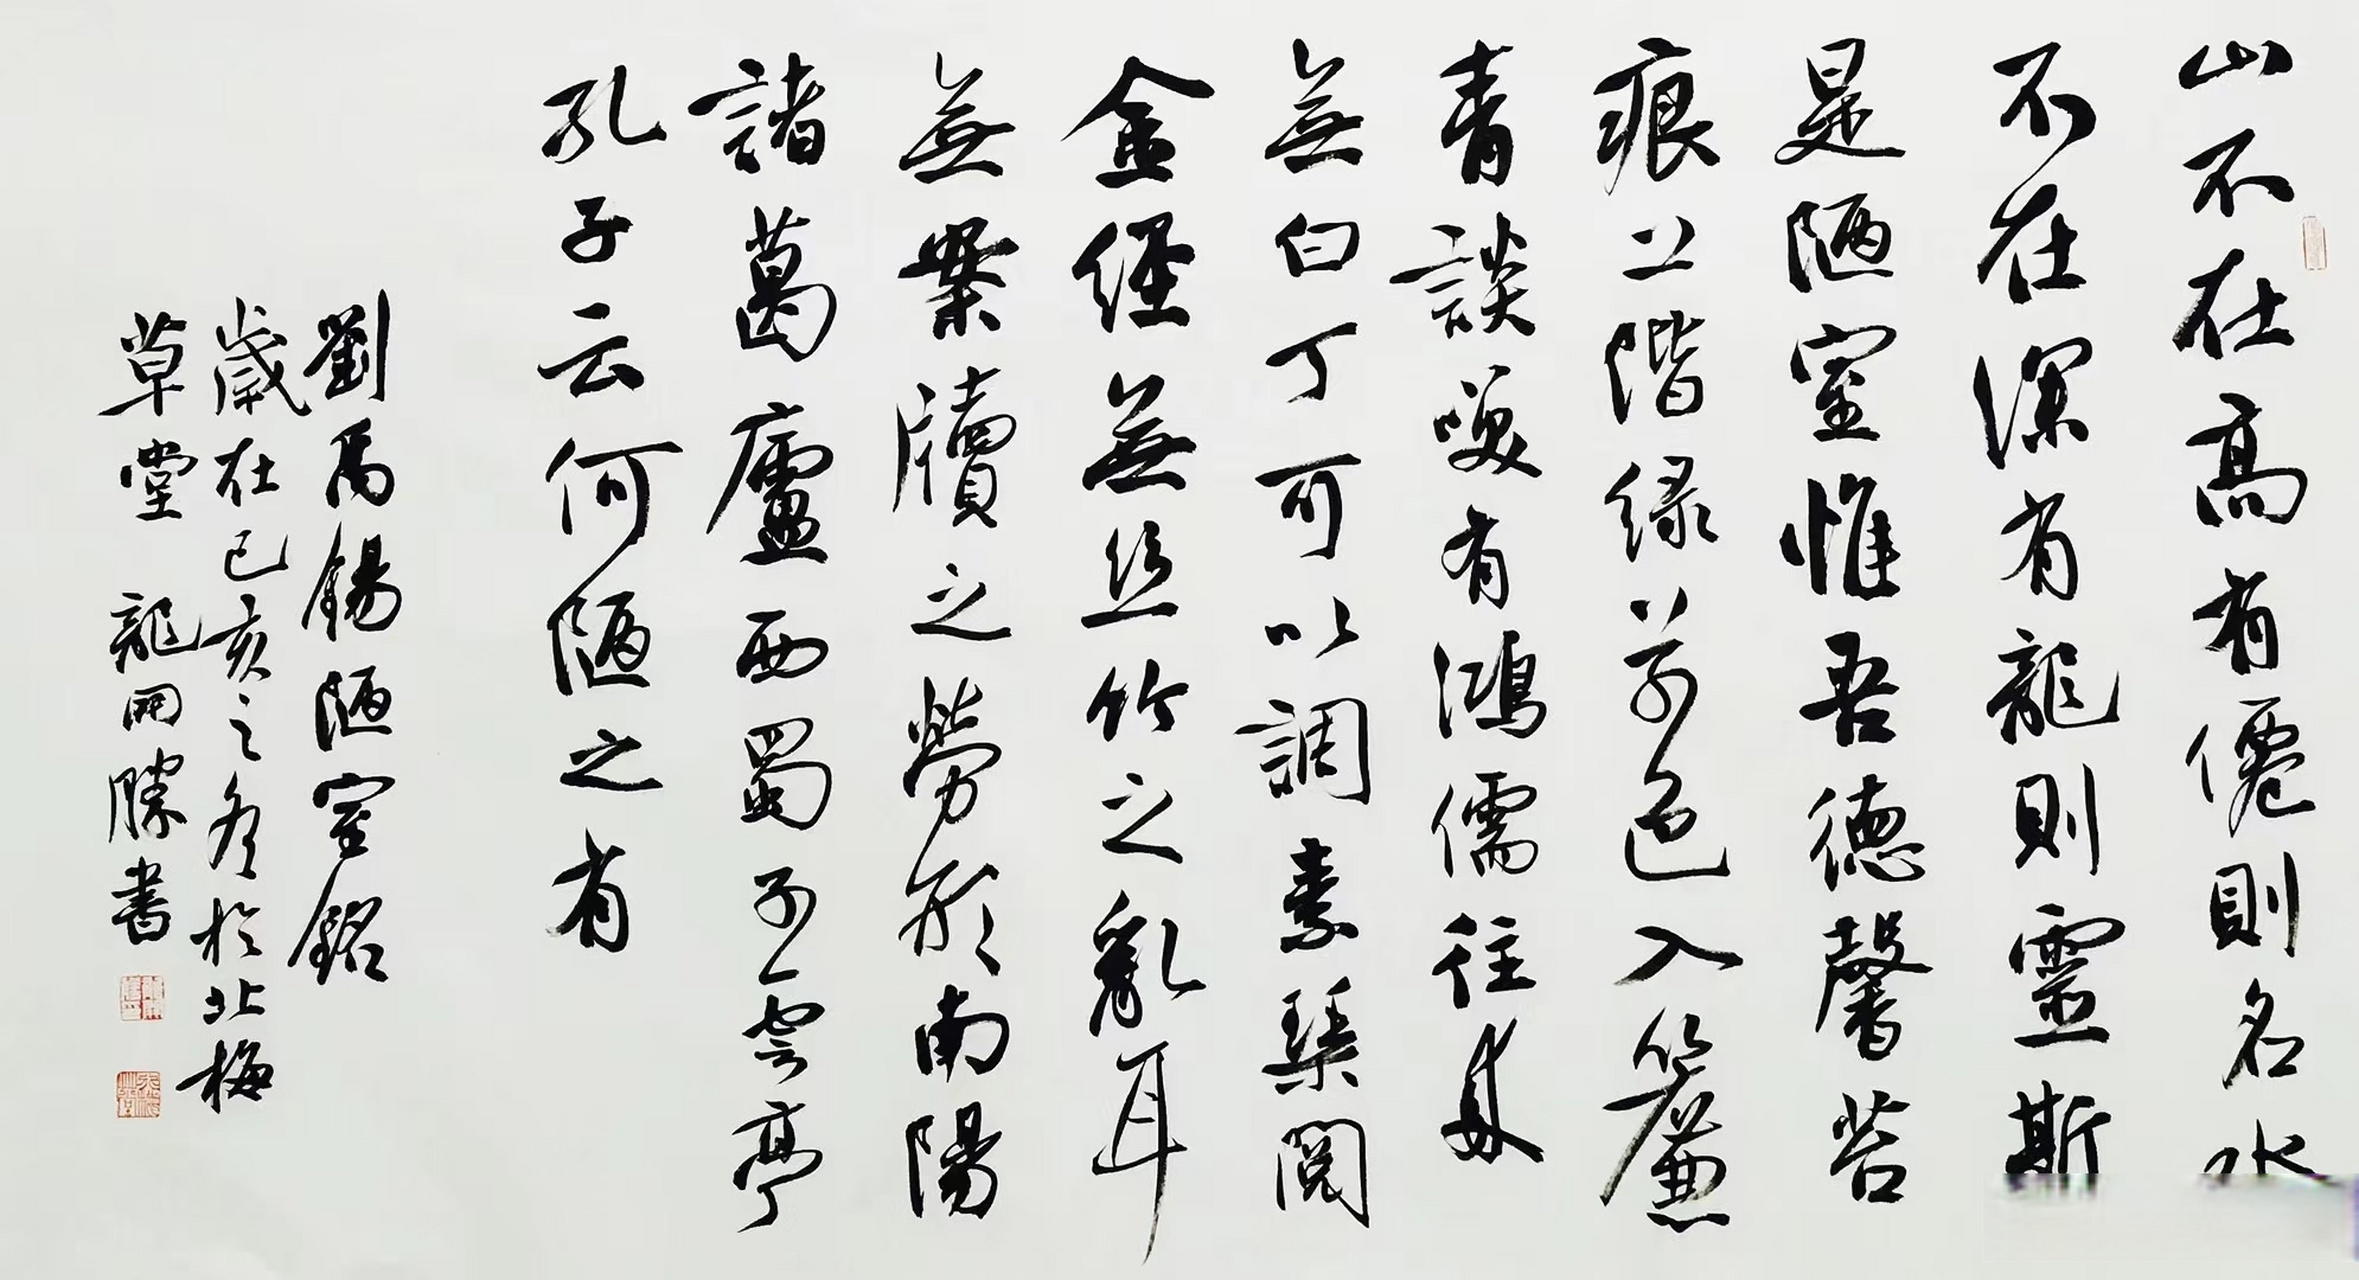 山不在高有僊則名水
不在深有龍則靈斯
是陋室惟吾德馨苔
痕上階緑草色入簾
青談笑有鴻儒往來
無白丁可以調素琴閱
金經無丝竹之亂耳
無案牘之勞形南陽
諸葛廬西蜀子雲亭
孔子云何陋之有
劉禹錫陋室銘
歲在己亥之冬於北梅
草堂 龍開勝書